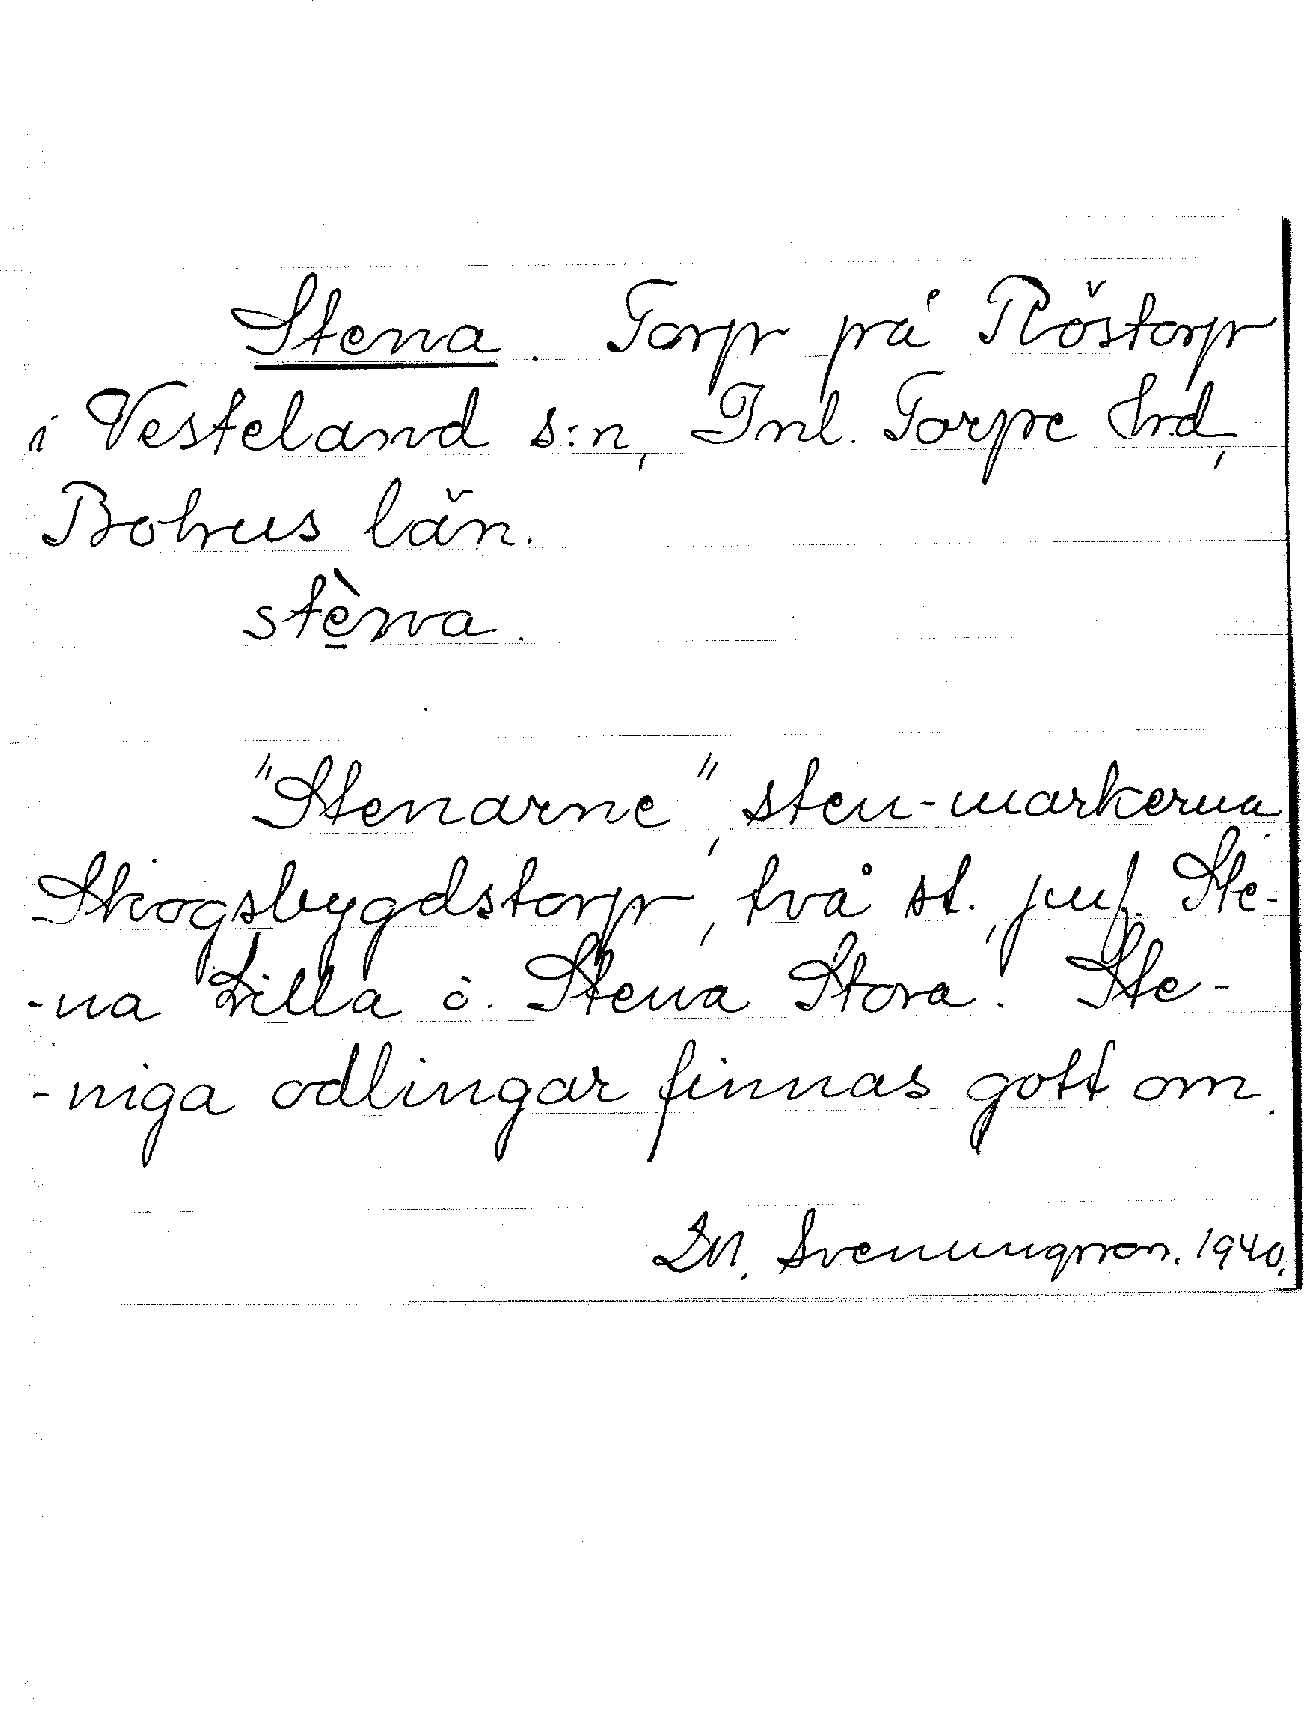 Stena. Torp på Röstorp
i Vesteland s:n, Inl. Torpe hrd,
Bohus län.
stèna.
"Stenarne", sten-markerna.
Skogsbygdstorp, två st., juf. Ste-
-na Lilla o. Stena Stora. Ste-
-niga odlingar finnas gott om.
Svenungsson. 1940.